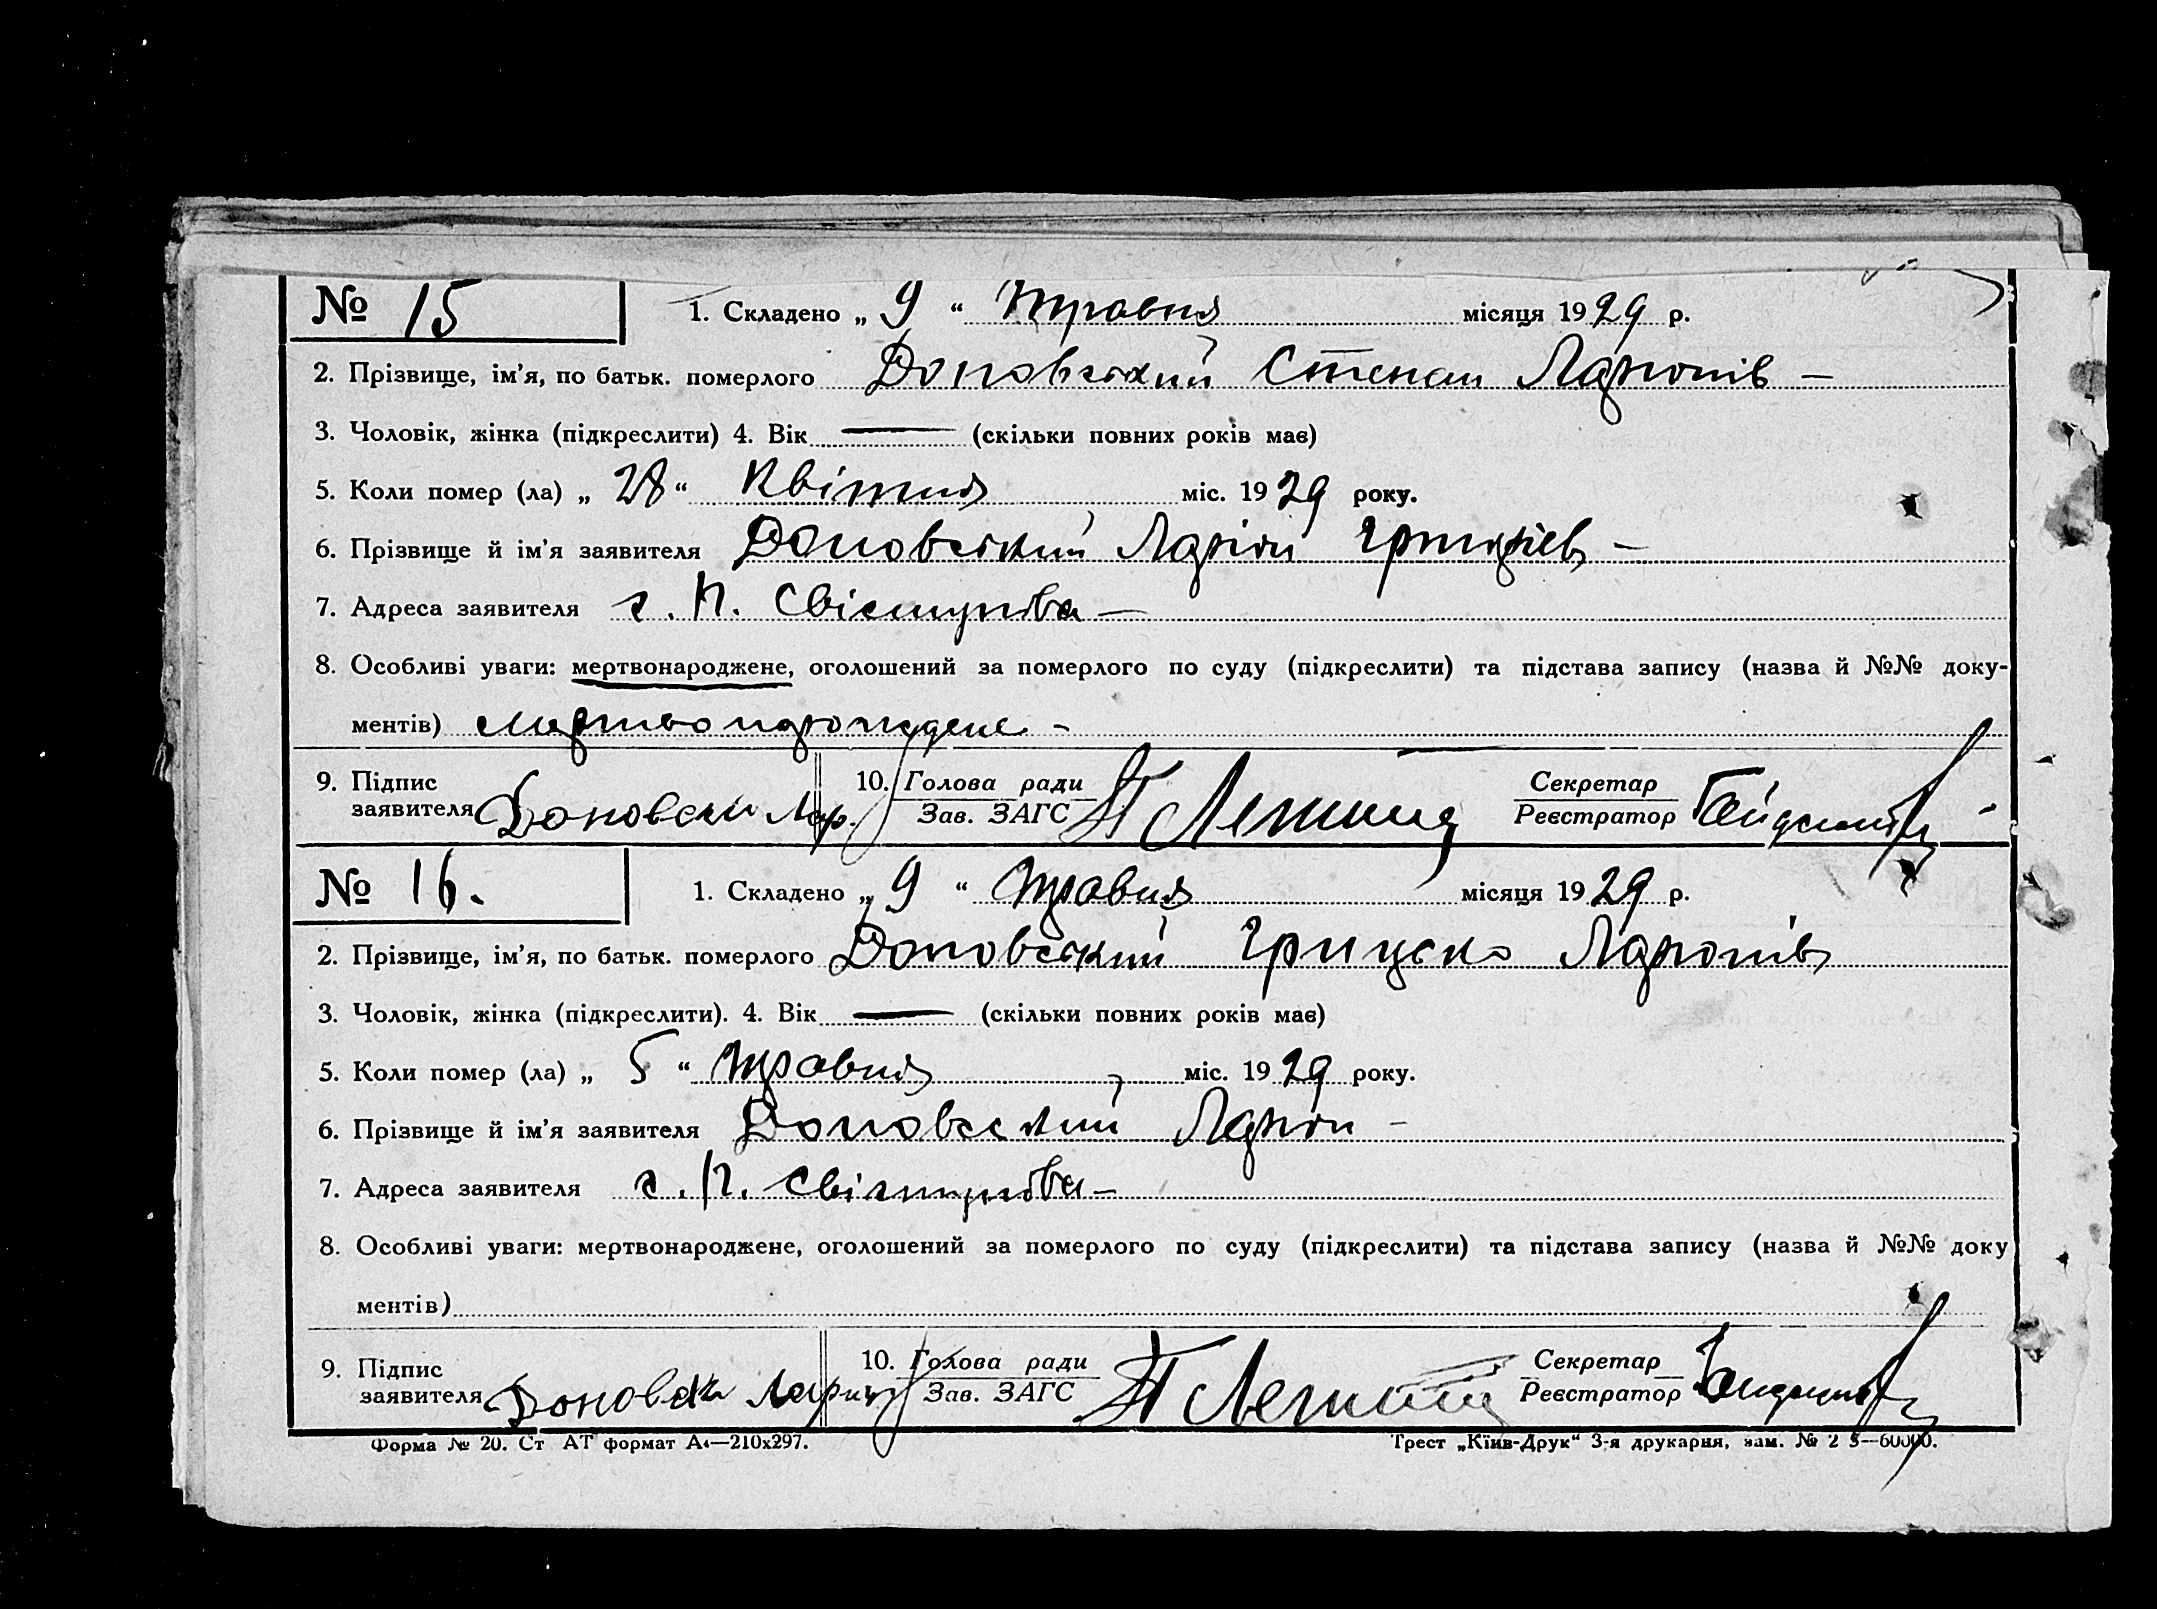 № 15 1. Складено „ 9 “ травня місяця 1929 р.
2. Прізвище, ім’я, по батьк. померлого Доновський Степан Ларионів –
3. Чоловік, жінка (підкреслити) 4. Вік — (скільки повних років має)
5. Коли помер (ла) „ 28 “ Квітня міс. 1929 року.
6. Прізвище й ім’я заявителя Доновський Ларіон –
7. Адреса заявителя с. П. Свістунівка –
8. Особливі уваги: мертвонароджене, оголошений за померлого по суду (підкреслити) та підстава запису (назва й №№ доку-
ментів) мертвонарождене –
9. Підпис заявителя Доновски Лар. 10. Голова ради
Зав. ЗАГС Секретар
Реєстратор
№ 16. 1. Складено „ 9 “ травня місяця 1929 р.
2. Прізвище, ім’я, по батьк. померлого Доновський Грицько Ларионів
3. Чоловік, жінка (підкреслити). 4. Вік — (скільки повних років має)
5. Коли помер (ла) „ 5 “ травня міс. 1929 року.
6. Прізвище й ім’я заявителя Доновський Ларион –
7. Адреса заявителя с. П. Свістунівка –
8. Особливі уваги: мертвонароджене, оголошений за померлого по суду (підкреслити) та підстава запису (назва й №№ доку
ментів)
9. Підпис заявителя Доновски 10. Голова ради
Зав. ЗАГС Секретар
Реєстратор
Форма № 20. Ст АТ формат А4—210х297. Трест „Київ-Друк“ 3-я друкарня, зам. №